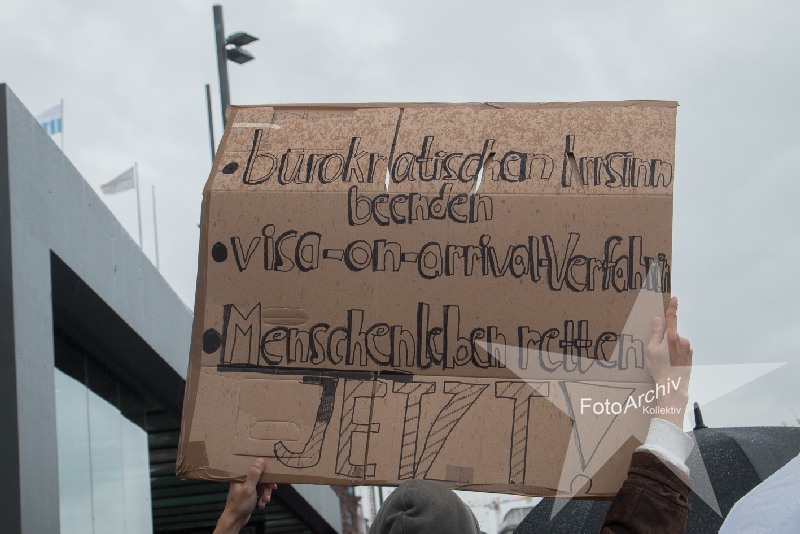 • bürokratischen Irrsinn
beenden
• visa-on-arrival-Verfahrn
• Menschenleben retten
JETZT!
FotoArchiv
Kollektiv